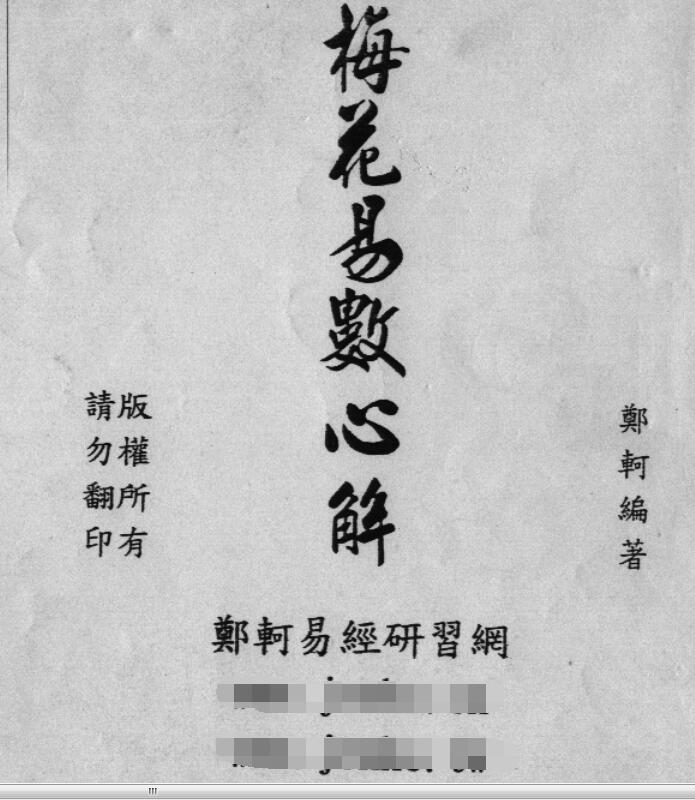 梅花易數心解
鄭軻編著
版權所有
請勿翻印
鄭軻易經研習網